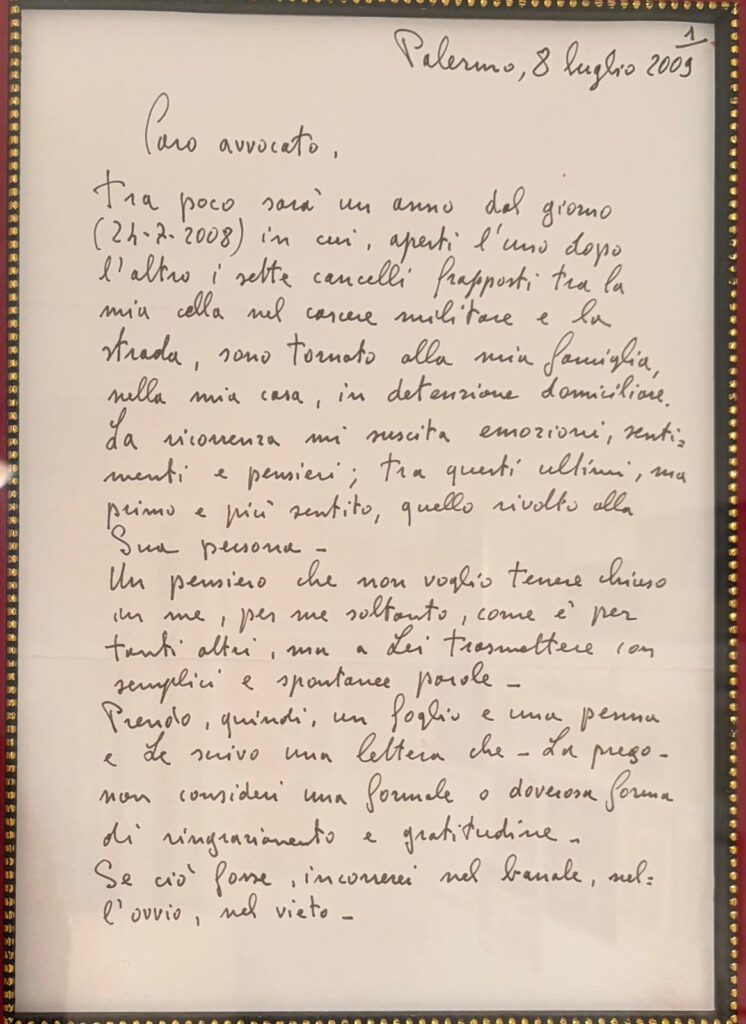 1
Palermo, 8 luglio 2009
Caro avvocato,
tra poco sarà un anno dal giorno
(24-7-2008) in cui, aperti l'uno dopo
l'altro i sette cancelli frapposti tra la
mia cella nel carcere militare e la
strada, sono tornato alla mia famiglia,
nella mia casa, in detenzione domiciliare.
La ricorrenza mi suscita emozioni, senti=
menti e pensieri; tra questi ultimi, ma
primo e più sentito, quello rivolto alla
Sua persona -
Un pensiero che non voglio tenere chiuso
in me, per me soltanto, come è per
tanti altri, ma a Lei trasmettere con
semplici e spontanee parole -
Prendo, quindi, un foglio e una penna
e Le scrivo una lettera che - La prego -
non consideri una formale o doverosa forma
di ringraziamento e gratitudine -
Se ciò fosse, incorrerei nel banale, nel=
l'ovvio, nel vieto -